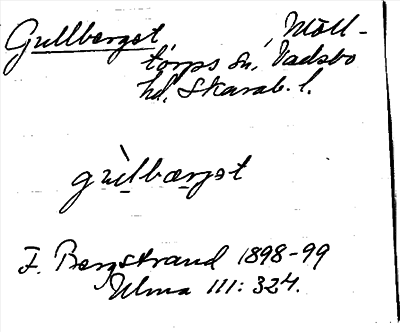 Gullberget, Möll-
torps sn, Vadsbo
hd, Skarab. l.
gu̇̀lbærjət
F. Bergstrand 1898-99
Ulma 111: 324.